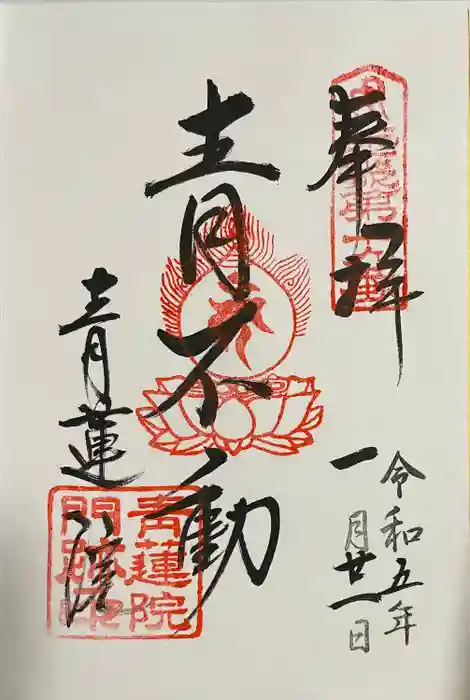 奉拝
令和五年
一月廿一日
青不動
青蓮院
青蓮院
門跡印